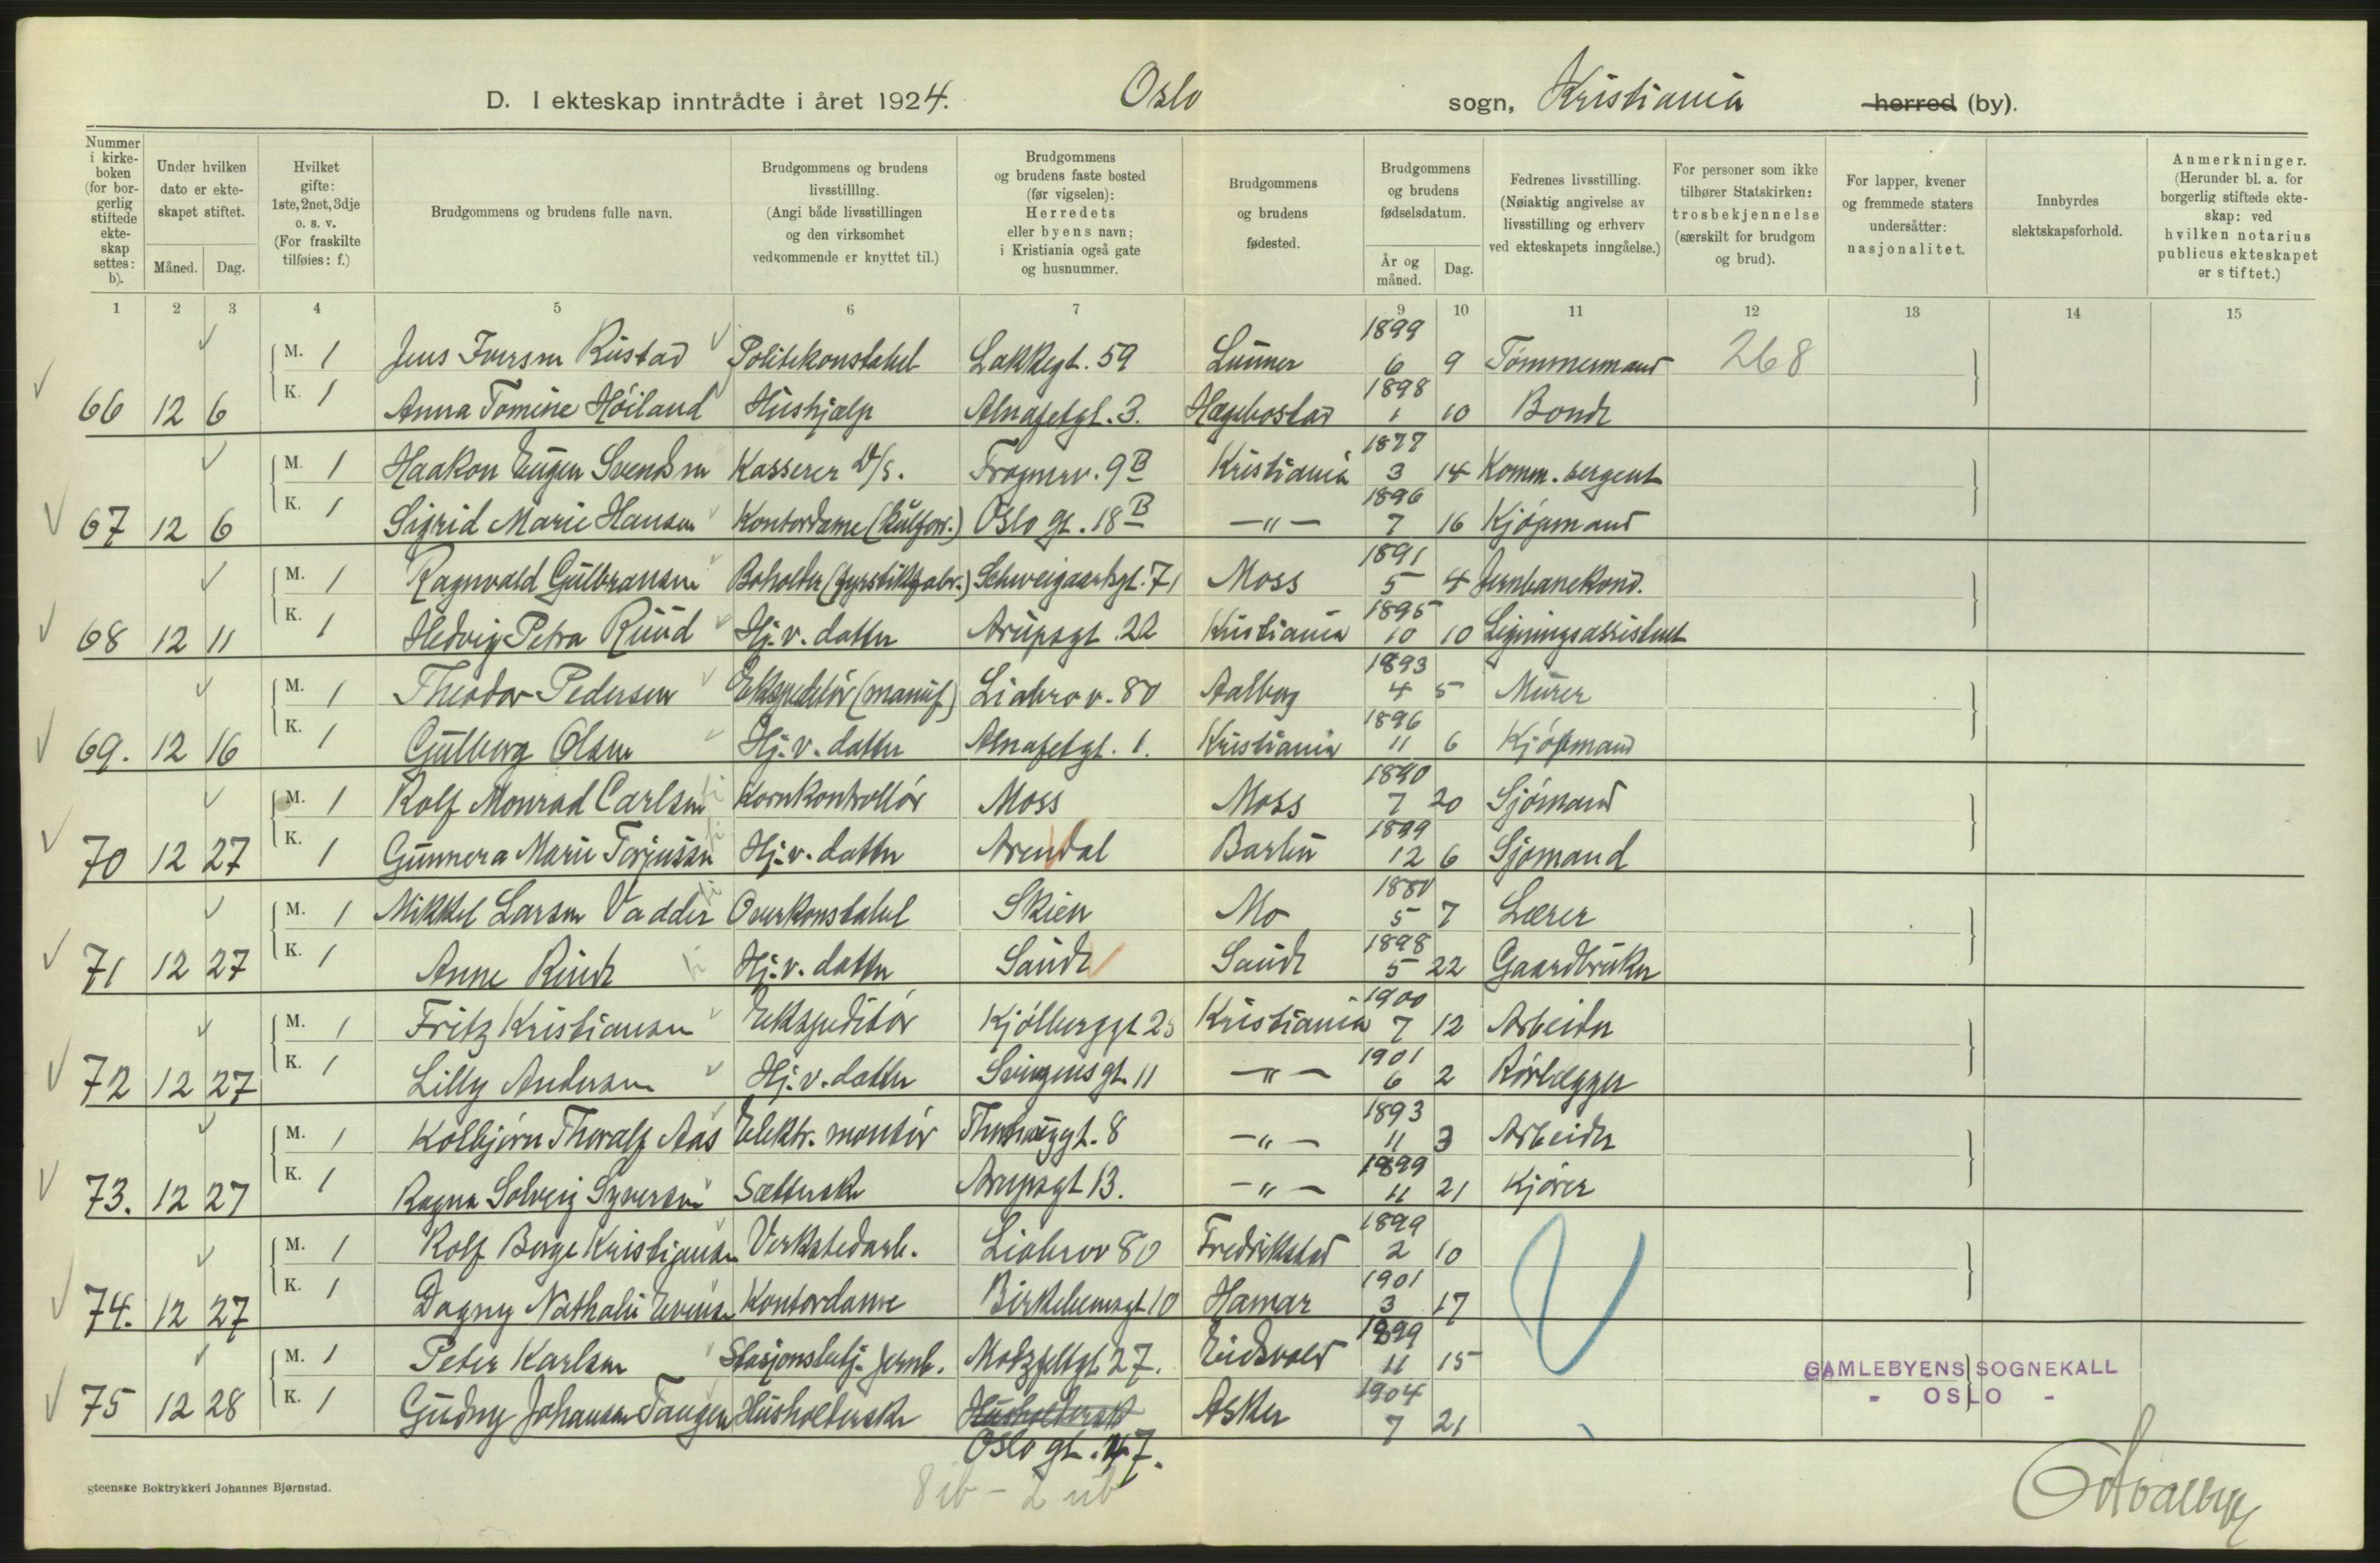 D. I ekteskap inntrådte i året 1924. Oslo sogn, Kristiania herred (by).
Nummer i kirke-boken (for bor-gerlig stiftede ekte-skap settes: b).
Under hvilken dato er ekte-skapet stiftet.
Måned. Dag.
Hvilket gifte: 1ste, 2net, 3dje o. s. v. (For fraskilte tilføies: f.)
Brudgommens og brudens fulle navn.
Brudgommens og brudens livsstilling. (Angi både livsstillingen og den virksomhet vedkommende er knyttet til.)
Brudgommens og brudens faste bosted (før vigselen): Herredets eller byens navn; i Kristiania også gate og husnummer.
Brudgommens og brudens fødested.
Brudgommens og brudens fødselsdatum.
År og måned. Dag.
Fedrenes livsstilling. (Nøiaktig angivelse av livsstilling og erhverv ved ekteskapets inngåelse.)
For personer som ikke tilhører Statskirken: trosbekjennelse (særskilt for brudgom og brud).
For lapper, kvener og fremmede staters undersåtter: nasjonalitet.
Innbyrdes slektskapsforhold.
Anmerkninger. (Herunder bl. a. for borgerlig stiftede ekte-skap: ved hvilken notarius publicus ekteskapet er stiftet.)
1 2 3 4 5 6 7 8 9 10 11 12 13 14 15
M. 1 Jens Iversen Rustad Politikonstabel Lakkegt. 59 Lunner 1899 6 9 Tømmermand 268
66 12 6 K. 1 Anna Tomine Høiland Hushjælp Alnafetgt. 3. Hægebostad 1898 1 10 Bonde
M. 1 Haakon Eugen Svendsen Kasserer D/S. Frognerv. 9B Kristiania 1877 3 14 Komm. bergent
67 12 6 K. 1 Sigrid Marie Hansen Kontordame (kulforr.) Oslo gt. 18B —"— 1896 7 16 Kjøpmand
M. 1 Ragnvald Gulbransen Boholder (fyrstikfabr.) Schweigaardsgt. 71 Moss 1891 5 4 Jernbanekond.
68 12 11 K. 1 Hedvig Petra Ruud Hj. v. datter Arupsgt. 22 Kristiania 1895 10 10 Ligningsassistent
M. 1 Theodor Pedersen Ekspeditør (manuf) Liabrov. 80 Aalborg 1893 4 5 Murer
69. 12 16 K. 1 Gulborg Olsen Hj. v. datter Alnafetgt. 1. Kristiania 1896 11 6 Kjøpmand
M. 1 Rolf Monrad Carlsen Kornkontrollør Moss Moss 1890 7 20 Sjømand
70 12 27 K. 1 Gunnera Marie Torjussen Hj. v. datter Arendal Barbu 1899 12 6 Sjømand
M. 1 Mikkel Larsen Vadder Overkonstabel Skien Mo 1880 5 7 Lærer
71 12 27 K. 1 Anne Hj. v. datter Saude Saude 1898 5 22 Gaardbruker
M. 1 Fritz Kristiansen Ekspeditør Kjølberggt 25 Kristiania 1900 7 12 Arbeider
72 12 27 K. 1 Lilly Andersen Hj. v. datter Svingensgt. 11 —"— 1901 6 2 Rørlægger
M. 1 Kolbjørn Thoralf Aas Elektr. montør 8 —"— 1893 11 3 Arbeider
73. 12 27 K. 1 Ragna Solveig Syversen Sætterske Arupsgt 13. —"— 1899 11 21 Kjører
M. 1 Rolf Berge Kristiansen Verkstedarb. Liabrov 80 Fredrikstad 1899 2 10
74. 12 27 K. 1 Dagny Nathalie Evensen Kontordame Birkebeinergt 10 Hamar 1901 3 17
M. 1 Peter Karlsen Stasjonsbetj. Jernb. Motzfeltgt. 27. Eidsvold 1899 11 15
75 12 28 K. 1 Gudny Johansen Tangen Husholderske Husholdersk Asker 1904 7 21
Oslo gt. 47.
8 ib – 2 ub
GAMLEBYENS SOGNEKALL
- OSLO -
gteenske Boktrykkeri Johannes Bjørnstad.